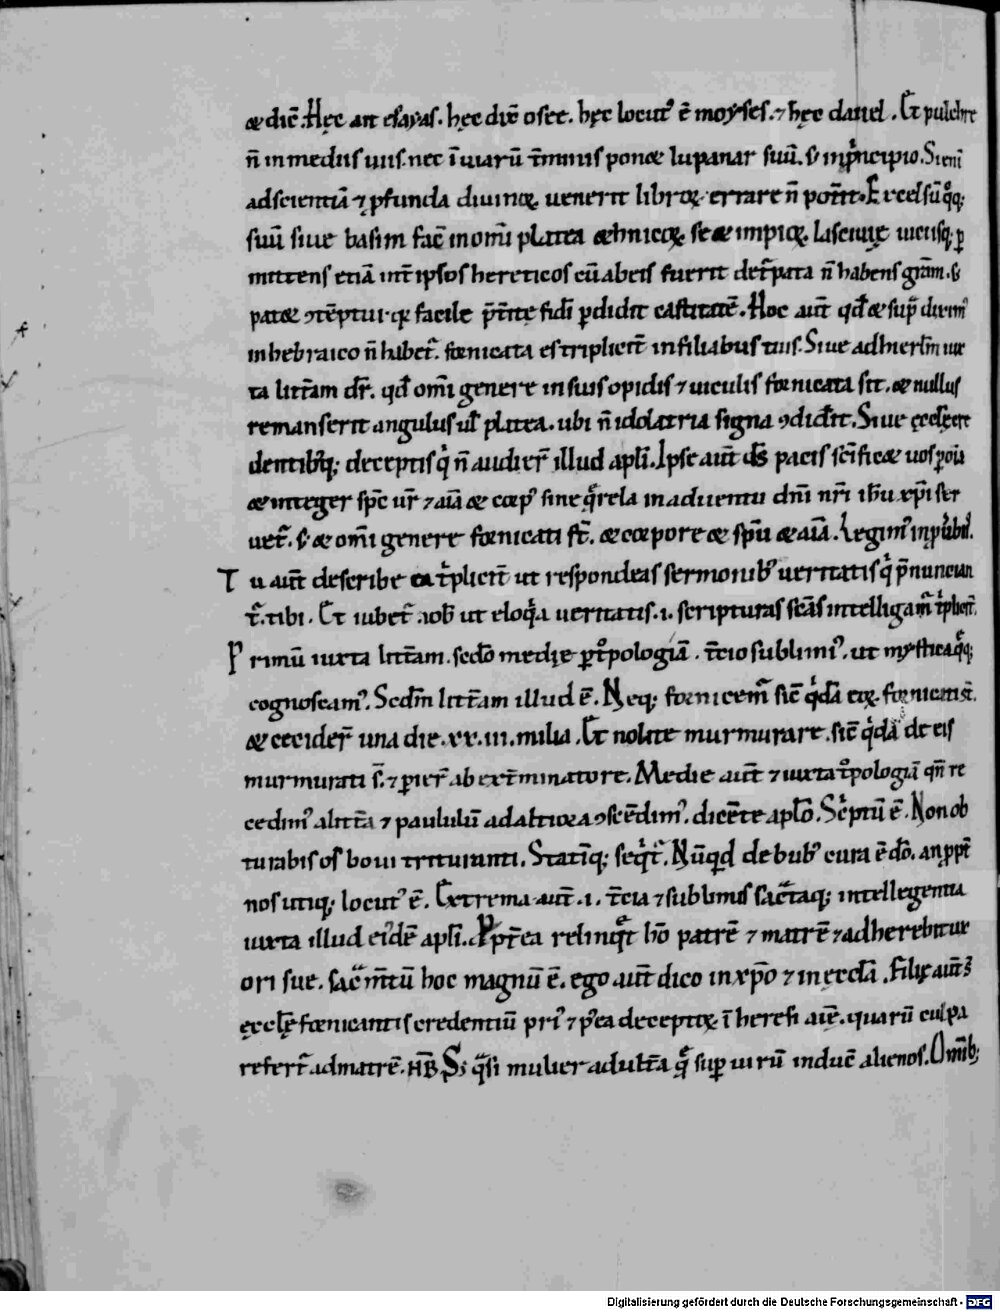 & dic̄. Hęc ait esayas. hęc dix̄ osee. hęc locut᾽ ē moyses. ⁊ hęc daniel. Et pulchre
n̄ in mediis uiis. nec ī uiarū t̄minis pon& lupanar suū. s; in p̄ncipio. Si enī
ad scientiā ⁊ p̄funda diuinoꝝ uenerit libroꝝ. errare n̄ pot̄it. Excelsū q̊q;
suū siue basim fac̄ in om̄i platea &hnicoꝝ. se & impioꝝ. lasciuię uicusq; ꝑ
mittens etiā int̄ ipsos hereticos cū ab eis fuerit det̄pata n̄ habens gr̄am. s;
pat& ꝯtēptui. ꝗ facile p̄t̄itę fidī ꝑdidit castitatē. Hoc aut̄ qd̄ & sup̄ dixim᾽
in hebraico n̄ hab&̄. fornicata es tripliciT̄ in filiabus tuis. Siue adhierl̄m iux
ta litt̄am dr̄. qd̄ om̄i genere in suis opidis ⁊ uiculis fornicata sit. & nullus
remanserit angulus ul̄ platea. ubi n̄ idolatria signa ꝯdid̄it. Siue ęcclę cre
dentibq; deceptisq; q̇ n̄ audier̄ illud apl̄i. Ipse aut̄ ds̄ pacis sc̄ific& uos ꝑ om̄ia
& integer sp̄c ur̄ ⁊ aīa & corp᾽ sine q̄rela in aduentu dn̄i nr̄i ih̄u xp̄i ser
uet̄. s; & om̄i genere fornicati st̄. & corpore & sp̄u & aīa. Legim᾽ in puerbiis.
Tu aut̄ describe ea t̄pliciT̄ ut respondeas sermonib᾽ ueritatis q̇ p̄nuncian
t̄. tibi. Et iubet̄ nob̄ ut eloq̄a ueritatis. .i. scripturas scās intelligam᾽ t̄pliciT̄.
Primū iuxta litt̄am. sedo medię ꝑ t̊pologiā. t̄cio sublimi᾽. ut mystica q̄q;
cognoscam᾽. Scdm̄ litt̄am illud ē. Neq; fornicem᾽ sic̄ q̇dā eoꝝ. fornicati st̄.
& cecider̄ una die. xx. iii. milia. Et nolite murmurare. sic̄ q̇dā de eis
murmurati s̄. ⁊ pier̄ ab ext̄minatore. Medie aut̄ ⁊ iuxta t̊pologiā qn̄ re
cedim᾽ a litt̄a ⁊ paululū ad altiora ꝯscēdim᾽. dicēte aplo. Sc̄ptū ē. Non ob
turabis os boui trituranti. Statīq; seq̇t̄. Nūqd̄ de bub᾽ cura ē do. an ppt̄
nos utiq; locut᾽ ē. Extrema aut̄ .i. t̄cia ⁊ sublimis sac̄taq; intellegentia
iuxta illud ei᾽dē apl̄i. Ppt̄ea relinq̄t hō patrē ⁊ matrē ⁊ adherebit ux
ori sue. sac̄m̄tū hoc magnū ē. ego aut̄ dico in xp̄o ⁊ in ęccl̄a. Filię aut̄
ęcclę fornicantis credentiū pri᾽ ⁊ p᾽ea deceptoꝝ ī heresi aīę. quarū culpa
refert̄ ad matrē. HB. S; q̄si mulier adult̄a q̄ sup̄ uirū induc̄ alienos. Omīb;
Digitalisierung gefördert durch die Deutsche Forschungsgemeinschaft - DFG